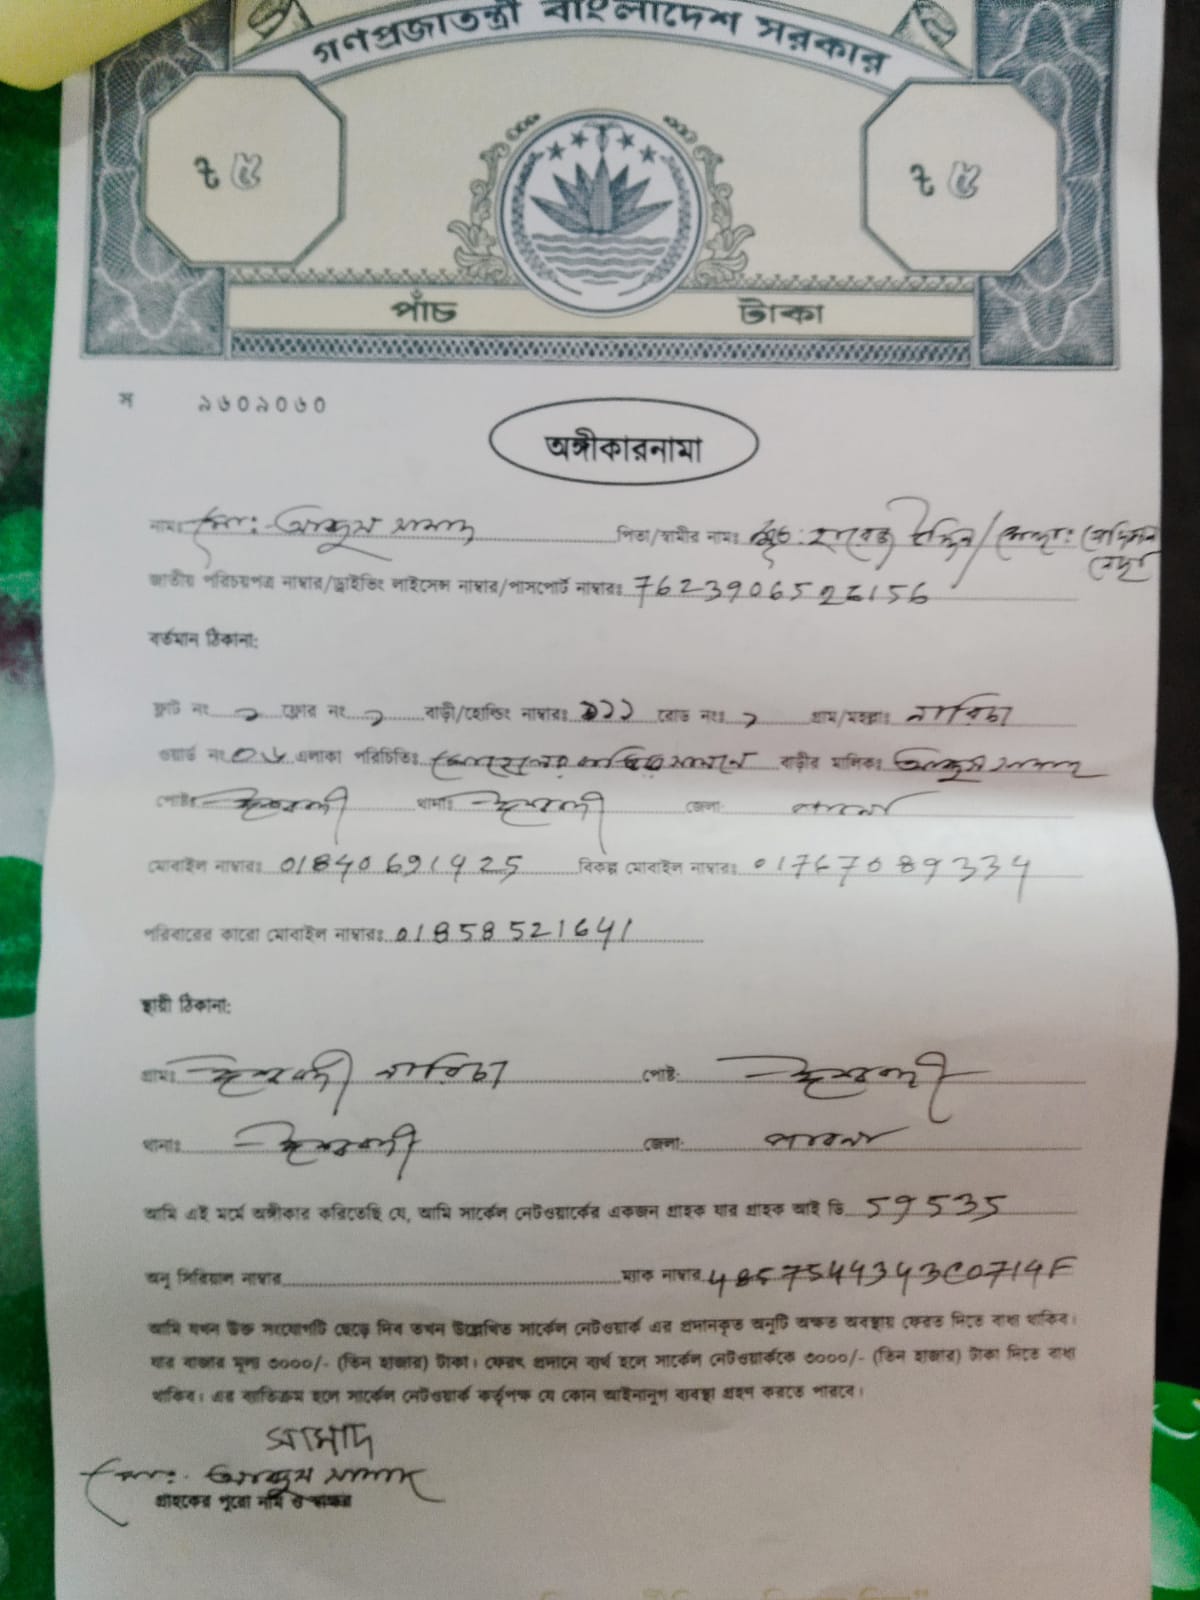 গণপ্রজাতন্ত্রী বাংলাদেশ সরকার
৳ ৫ ৳ ৫
পাঁচ টাকা
স ৯৬০৯০৬০
অঙ্গীকারনামা
নামঃ মোঃ আব্দুস সামাদ পিতা/স্বামীর নামঃ মৃত: উদ্দিন/
জাতীয় পরিচয়পত্র নাম্বার/ড্রাইভিং লাইসেন্স নাম্বার/পাসপোর্ট নাম্বারঃ
বর্তমান ঠিকানা:
ফ্লাট নং ১ ফ্লোর নং ১ বাড়ী/হোল্ডিং নাম্বারঃ রোড নংঃ ১ গ্রাম/মহল্লাঃ নারিচা
ওয়ার্ড নং ০৬ এলাকা পরিচিতিঃ বাড়ির সামনে বাড়ীর মালিকঃ আব্দুস সামাদ
পোষ্টঃ ঈশ্বরদী থানাঃ ঈশ্বরদী জেলা: পাবনা
মোবাইল নাম্বারঃ 01840691925 বিকল্প মোবাইল নাম্বারঃ 01767089334
পরিবারের কারো মোবাইল নাম্বারঃ 01858521641
স্থায়ী ঠিকানা:
গ্রামঃ ঈশ্বরদী নারিচা পোষ্ট: ঈশ্বরদী
থানাঃ ঈশ্বরদী জেলা: পাবনা
আমি এই মর্মে অঙ্গীকার করিতেছি যে, আমি সার্কেল নেটওয়ার্কের একজন গ্রাহক যার গ্রাহক আই ডি 59535
অনু সিরিয়াল নাম্বার ম্যাক নাম্বার
আমি যখন উক্ত সংযোগটি ছেড়ে দিব তখন উল্লেখিত সার্কেল নেটওয়ার্ক এর প্রদানকৃত অনুটি অক্ষত অবস্থায় ফেরত দিতে বাধ্য থাকিব।
যার বাজার মূল্য ৩০০০/- (তিন হাজার) টাকা। ফেরৎ প্রদানে ব্যর্থ হলে সার্কেল নেটওয়ার্ককে ৩০০০/- (তিন হাজার) টাকা দিতে বাধ্য
থাকিব। এর ব্যতিক্রম হলে সার্কেল নেটওয়ার্ক কর্তৃপক্ষ যে কোন আইনানুগ ব্যবস্থা গ্রহণ করতে পারবে।
সামাদ
মোঃ আব্দুস সামাদ
গ্রাহকের পুরো নাম ও স্বাক্ষর